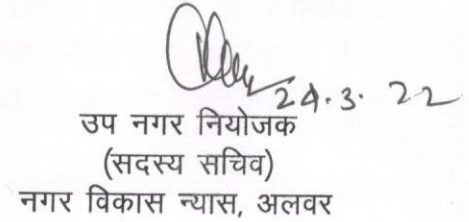 24.3.22
उप नगर नियोजक
(सदस्य सचिव)
नगर विकास न्यास, अलवर